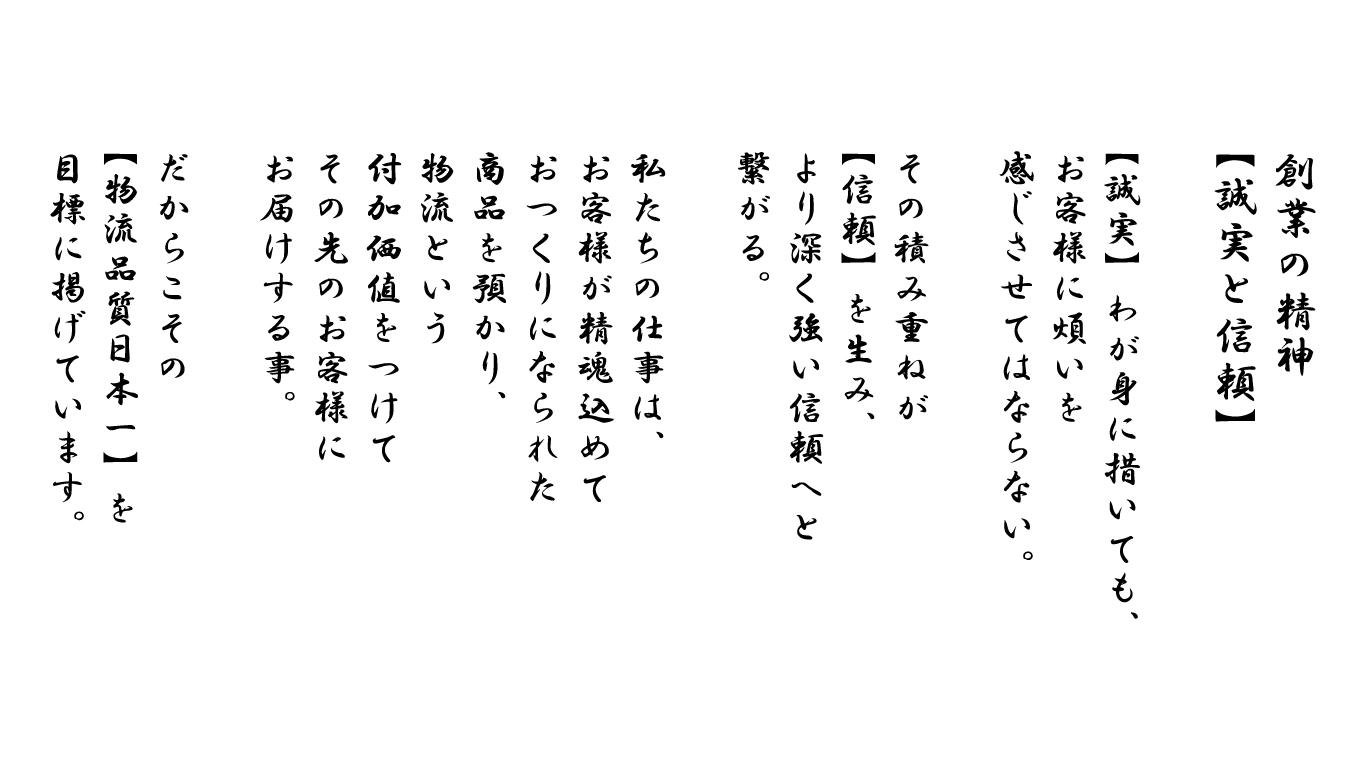 創業の精神
【誠実と信頼】
【誠実】わが身に措いても、
お客様に煩いを
感じさせてはならない。
その積み重ねが
【信頼】を生み、
より深く強い信頼へと
繋がる。
私たちの仕事は、
お客様が精魂込めて
おつくりになられた
商品を預かり、
物流という
付加価値をつけて
その先のお客様に
お届けする事。
だからこその
【物流品質日本一】を
目標に掲げています。